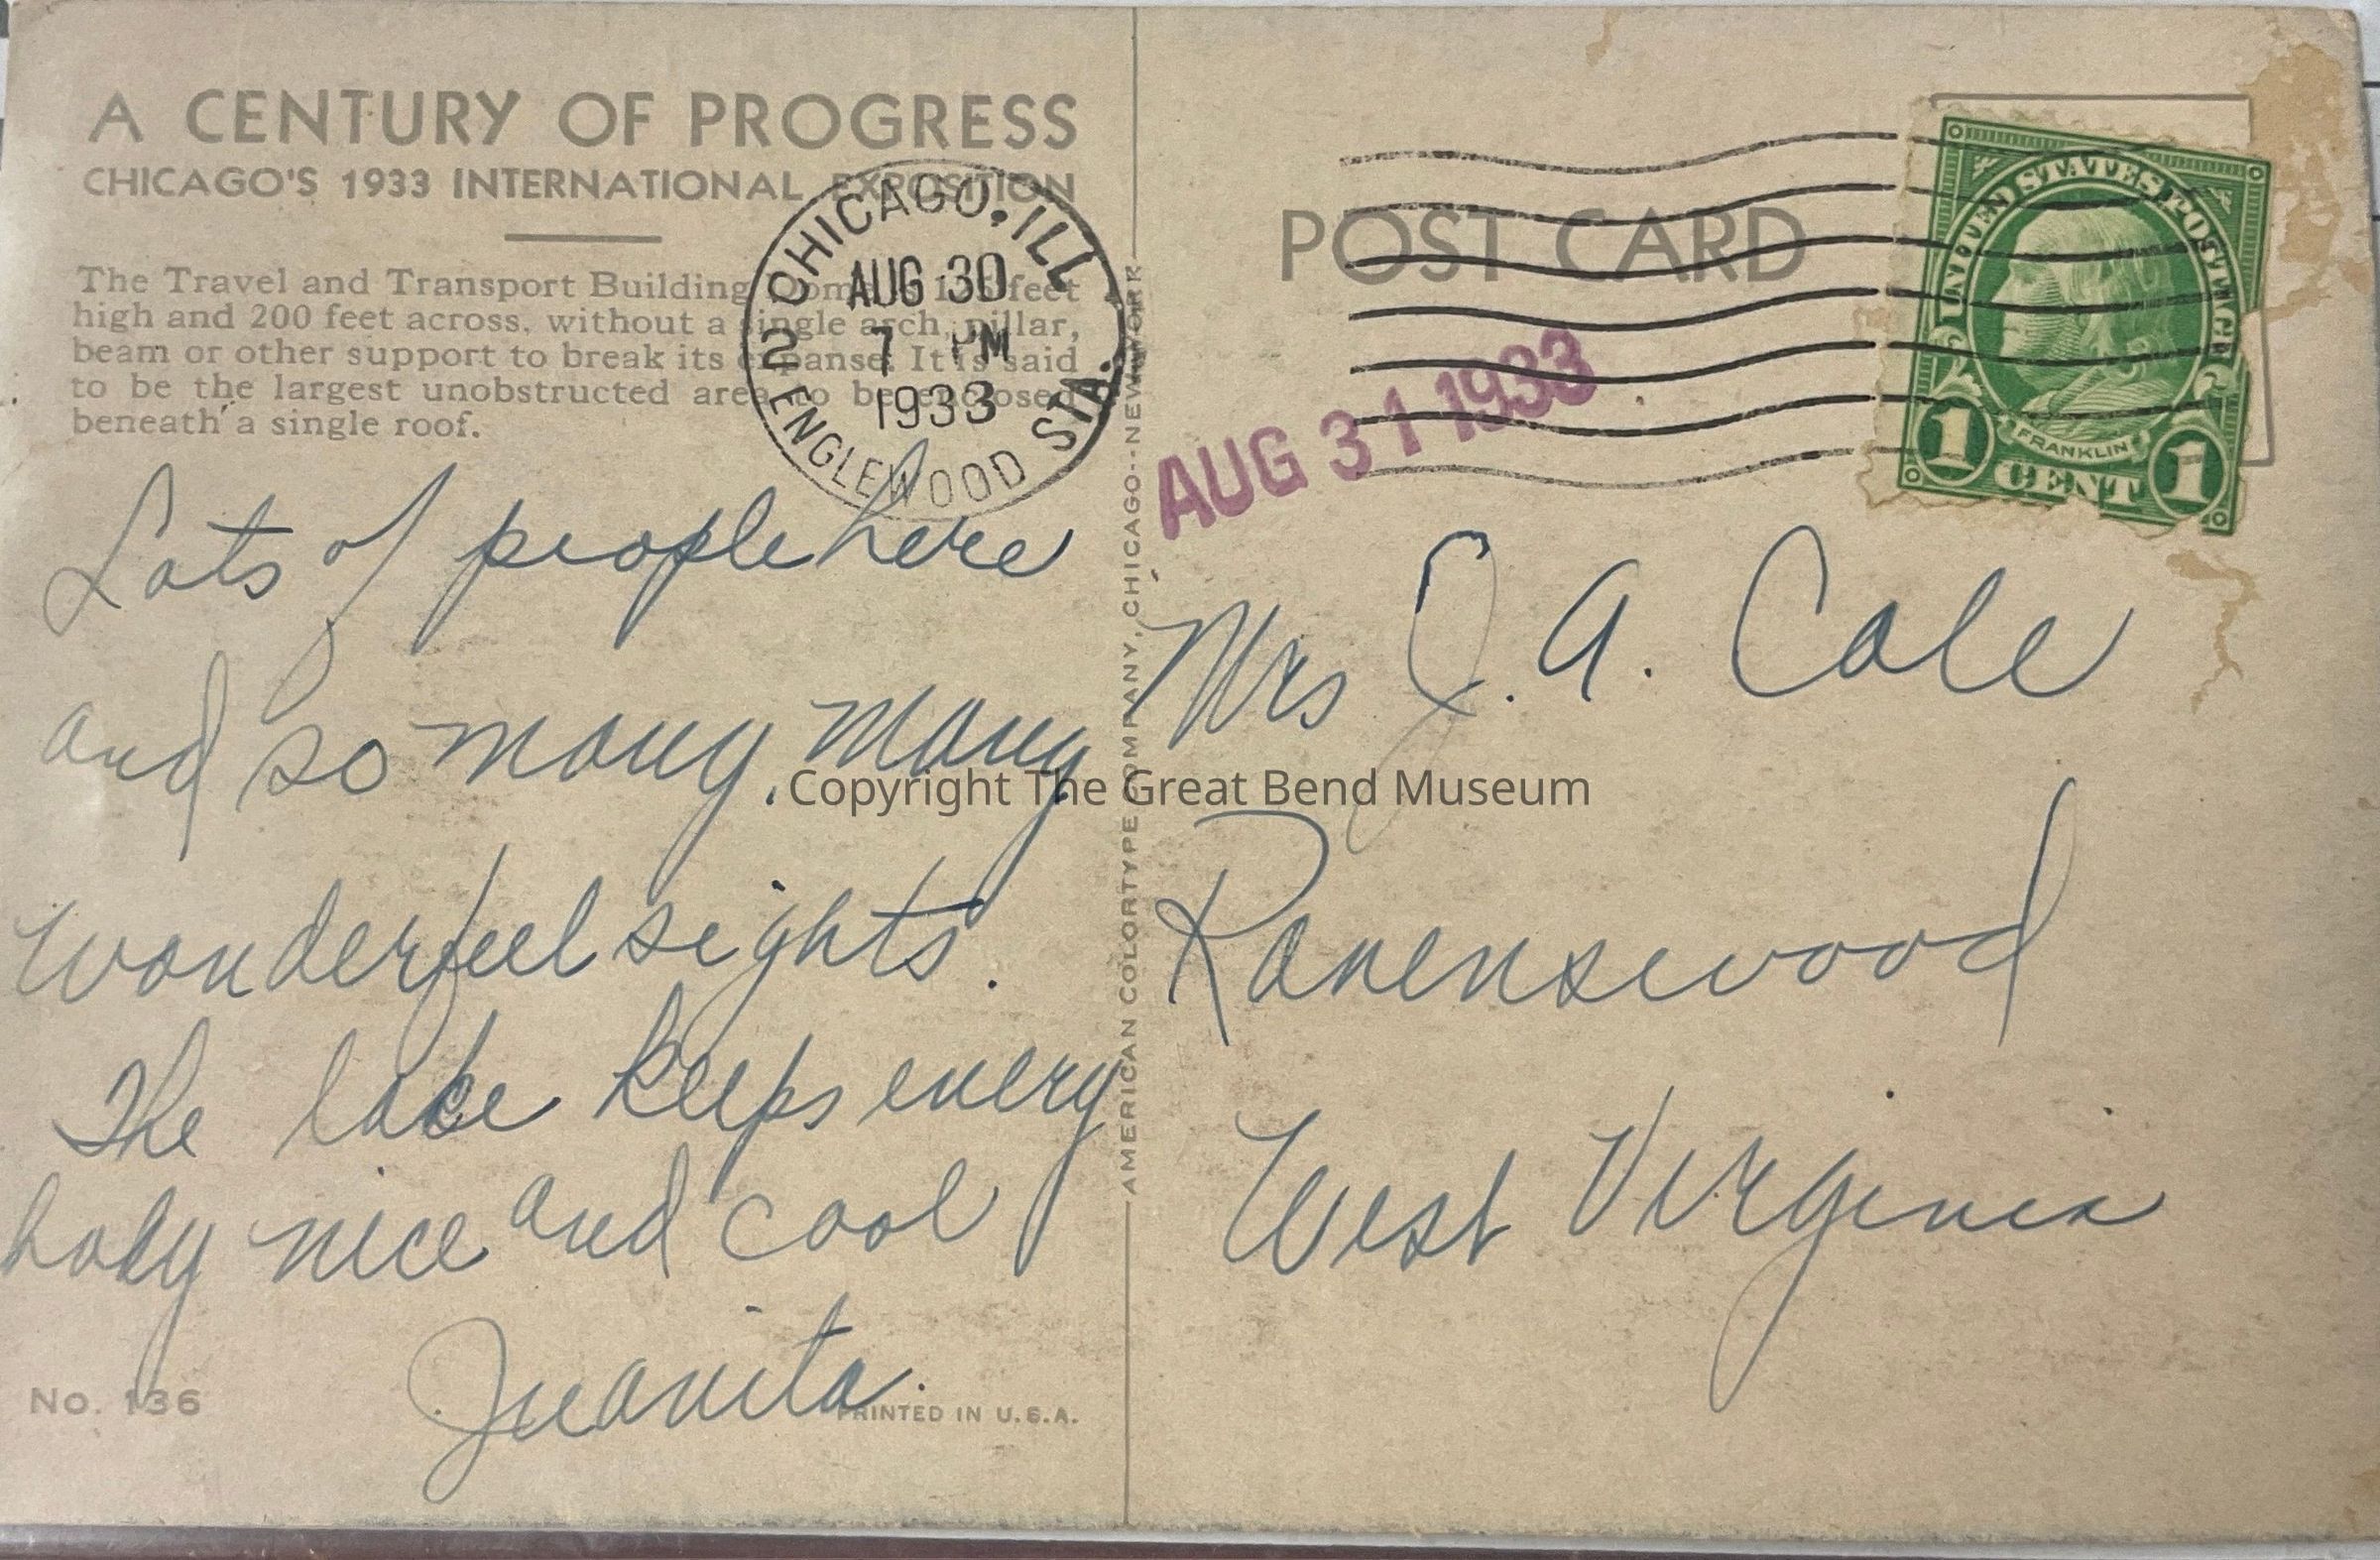 A CENTURY OF PROGRESS
CHICAGO'S 1933 INTERNATIONAL EXPOSITION
The Travel and Transport Building Dome is 125 feet
high and 200 feet across, without a single arch, pillar,
beam or other support to break its expanse. It is said
to be the largest unobstructed area to be enclosed
beneath a single roof.
CHICAGO, ILL
AUG 30
7 PM
1933
2
ENGLEWOOD STA.
Lots of people here
and so many, many
wonderful sights.
The lake keeps every
body nice and cool
Juanita.
No. 136
PRINTED IN U.S.A.
AMERICAN COLORTYPE COMPANY, CHICAGO--NEW YORK
POST CARD
AUG 31 1933
UNITED STATES POSTAGE
FRANKLIN
1 CENT 1
Mrs J. A. Cole
Ravenswood
West Virginia
Copyright The Great Bend Museum